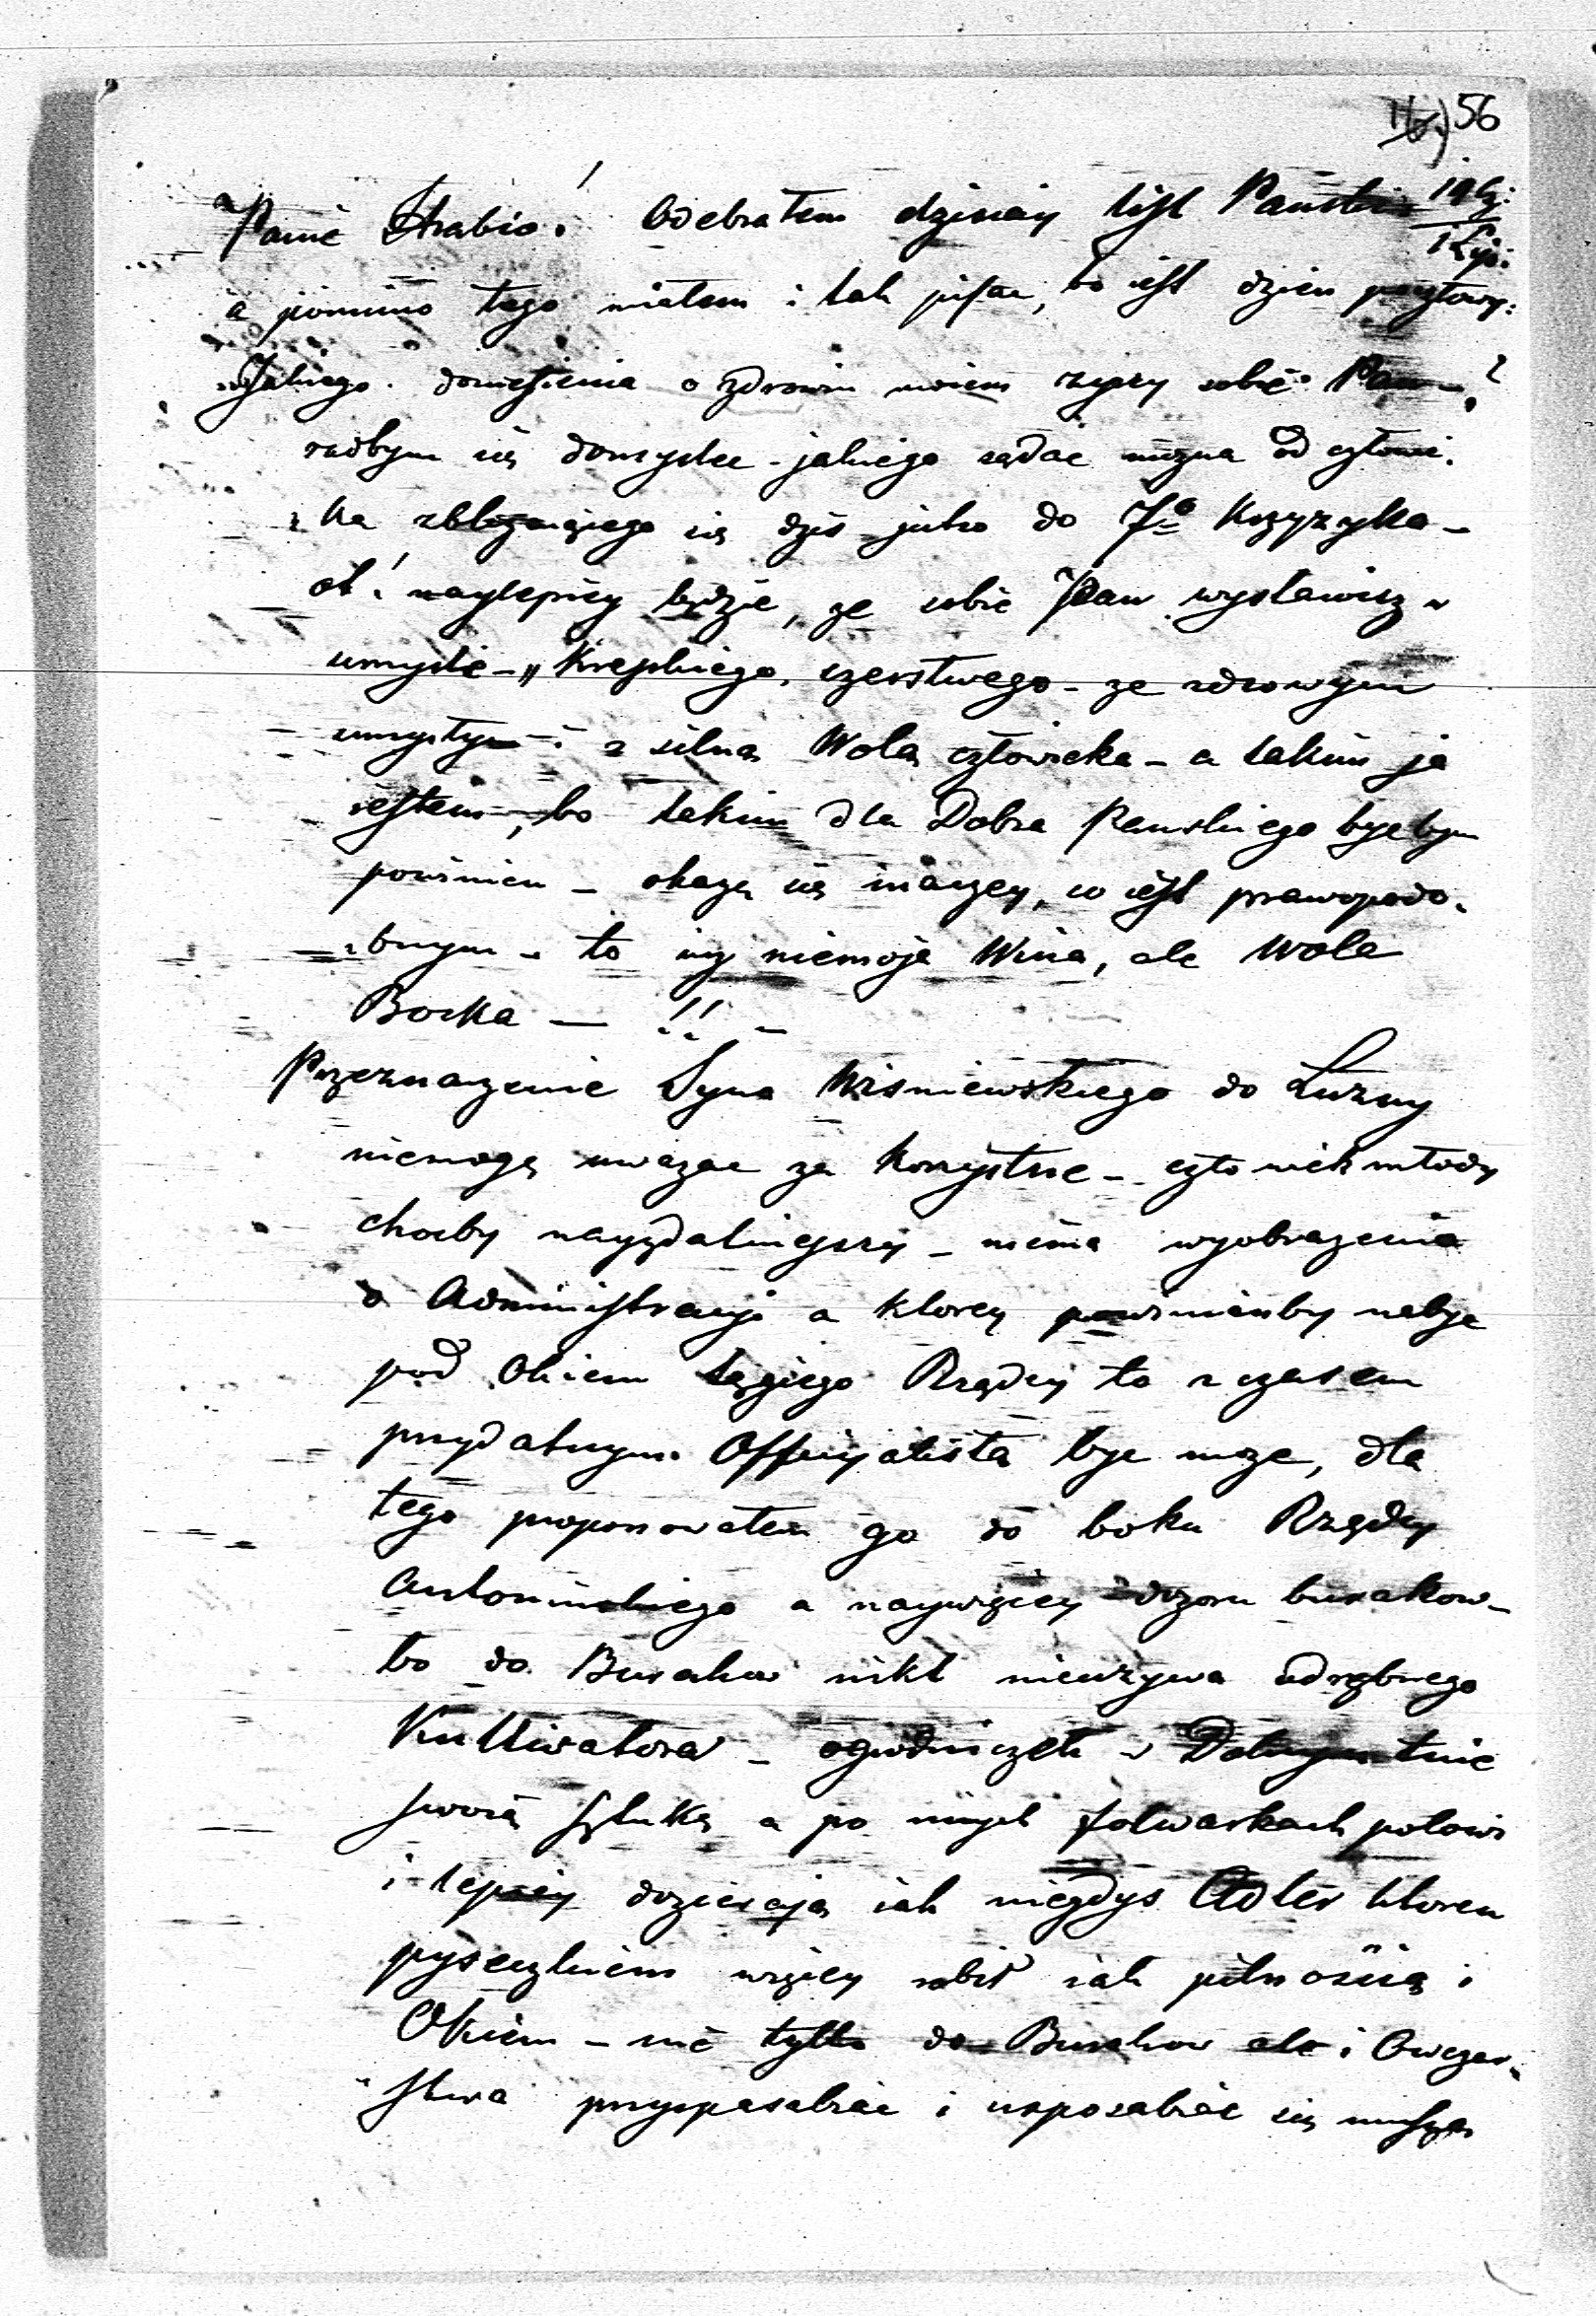 56
Panie Hrabio! Odebrałem dzisiay list Pański 19 Cz:
1 Lip:
a pomimo tego miałem i tak pisac, bo iest dzien pocztowy:
Jakiego doniesienia o zdrowiu moiem życzy sobie Pan —?
radbym się domyslec – jakiego rządac można od człowie,
ka zblizaiącego się dzis jutro do 7º Krzyzyka –
ot! naylepiey będzie, ze sobie Pan wystawisz w
umysle – „Krepkiego, czerstwego – ze zdrowym
umysłym i z silną Wolą człowieka – a takim ja
iestem, bo takim dla Dobra Panskiego byc bym
powinien – okaże się inaczey, co iest prawdopodo,
bnym – to iuz niemoja Wina, ale Wola
Boska — !! –
Przeznaczenie Syna Wisniewskiego do Łuzny
niemogę uwazac za korzystne – człowiek młody
chocby nayzdatnieyszy – niema wyobrazenia
o Administracyi a ktorey powinienby nabyc
pod Okiem tęgiego Rządcy to z czasem
przydatnym Officyalistą byc moze, dla
tego proponowałem go do boku Rządcy
Antoninskiego a naywięcey dozoru burakow –
bo do Burakow nikt nieuzywa odrębnego
Kultiwatora – ogrodniczek w
swoią sztuką a po innych folwarkach połowi
i lepiey dozierają iak niegdys Adler ktoren
pyseczkiem więcey robił iak pilnoscią i
Okiem – nie tylko do Burakow ale i Owczar„
stwa przyspasabiac i usposabiac się muszą